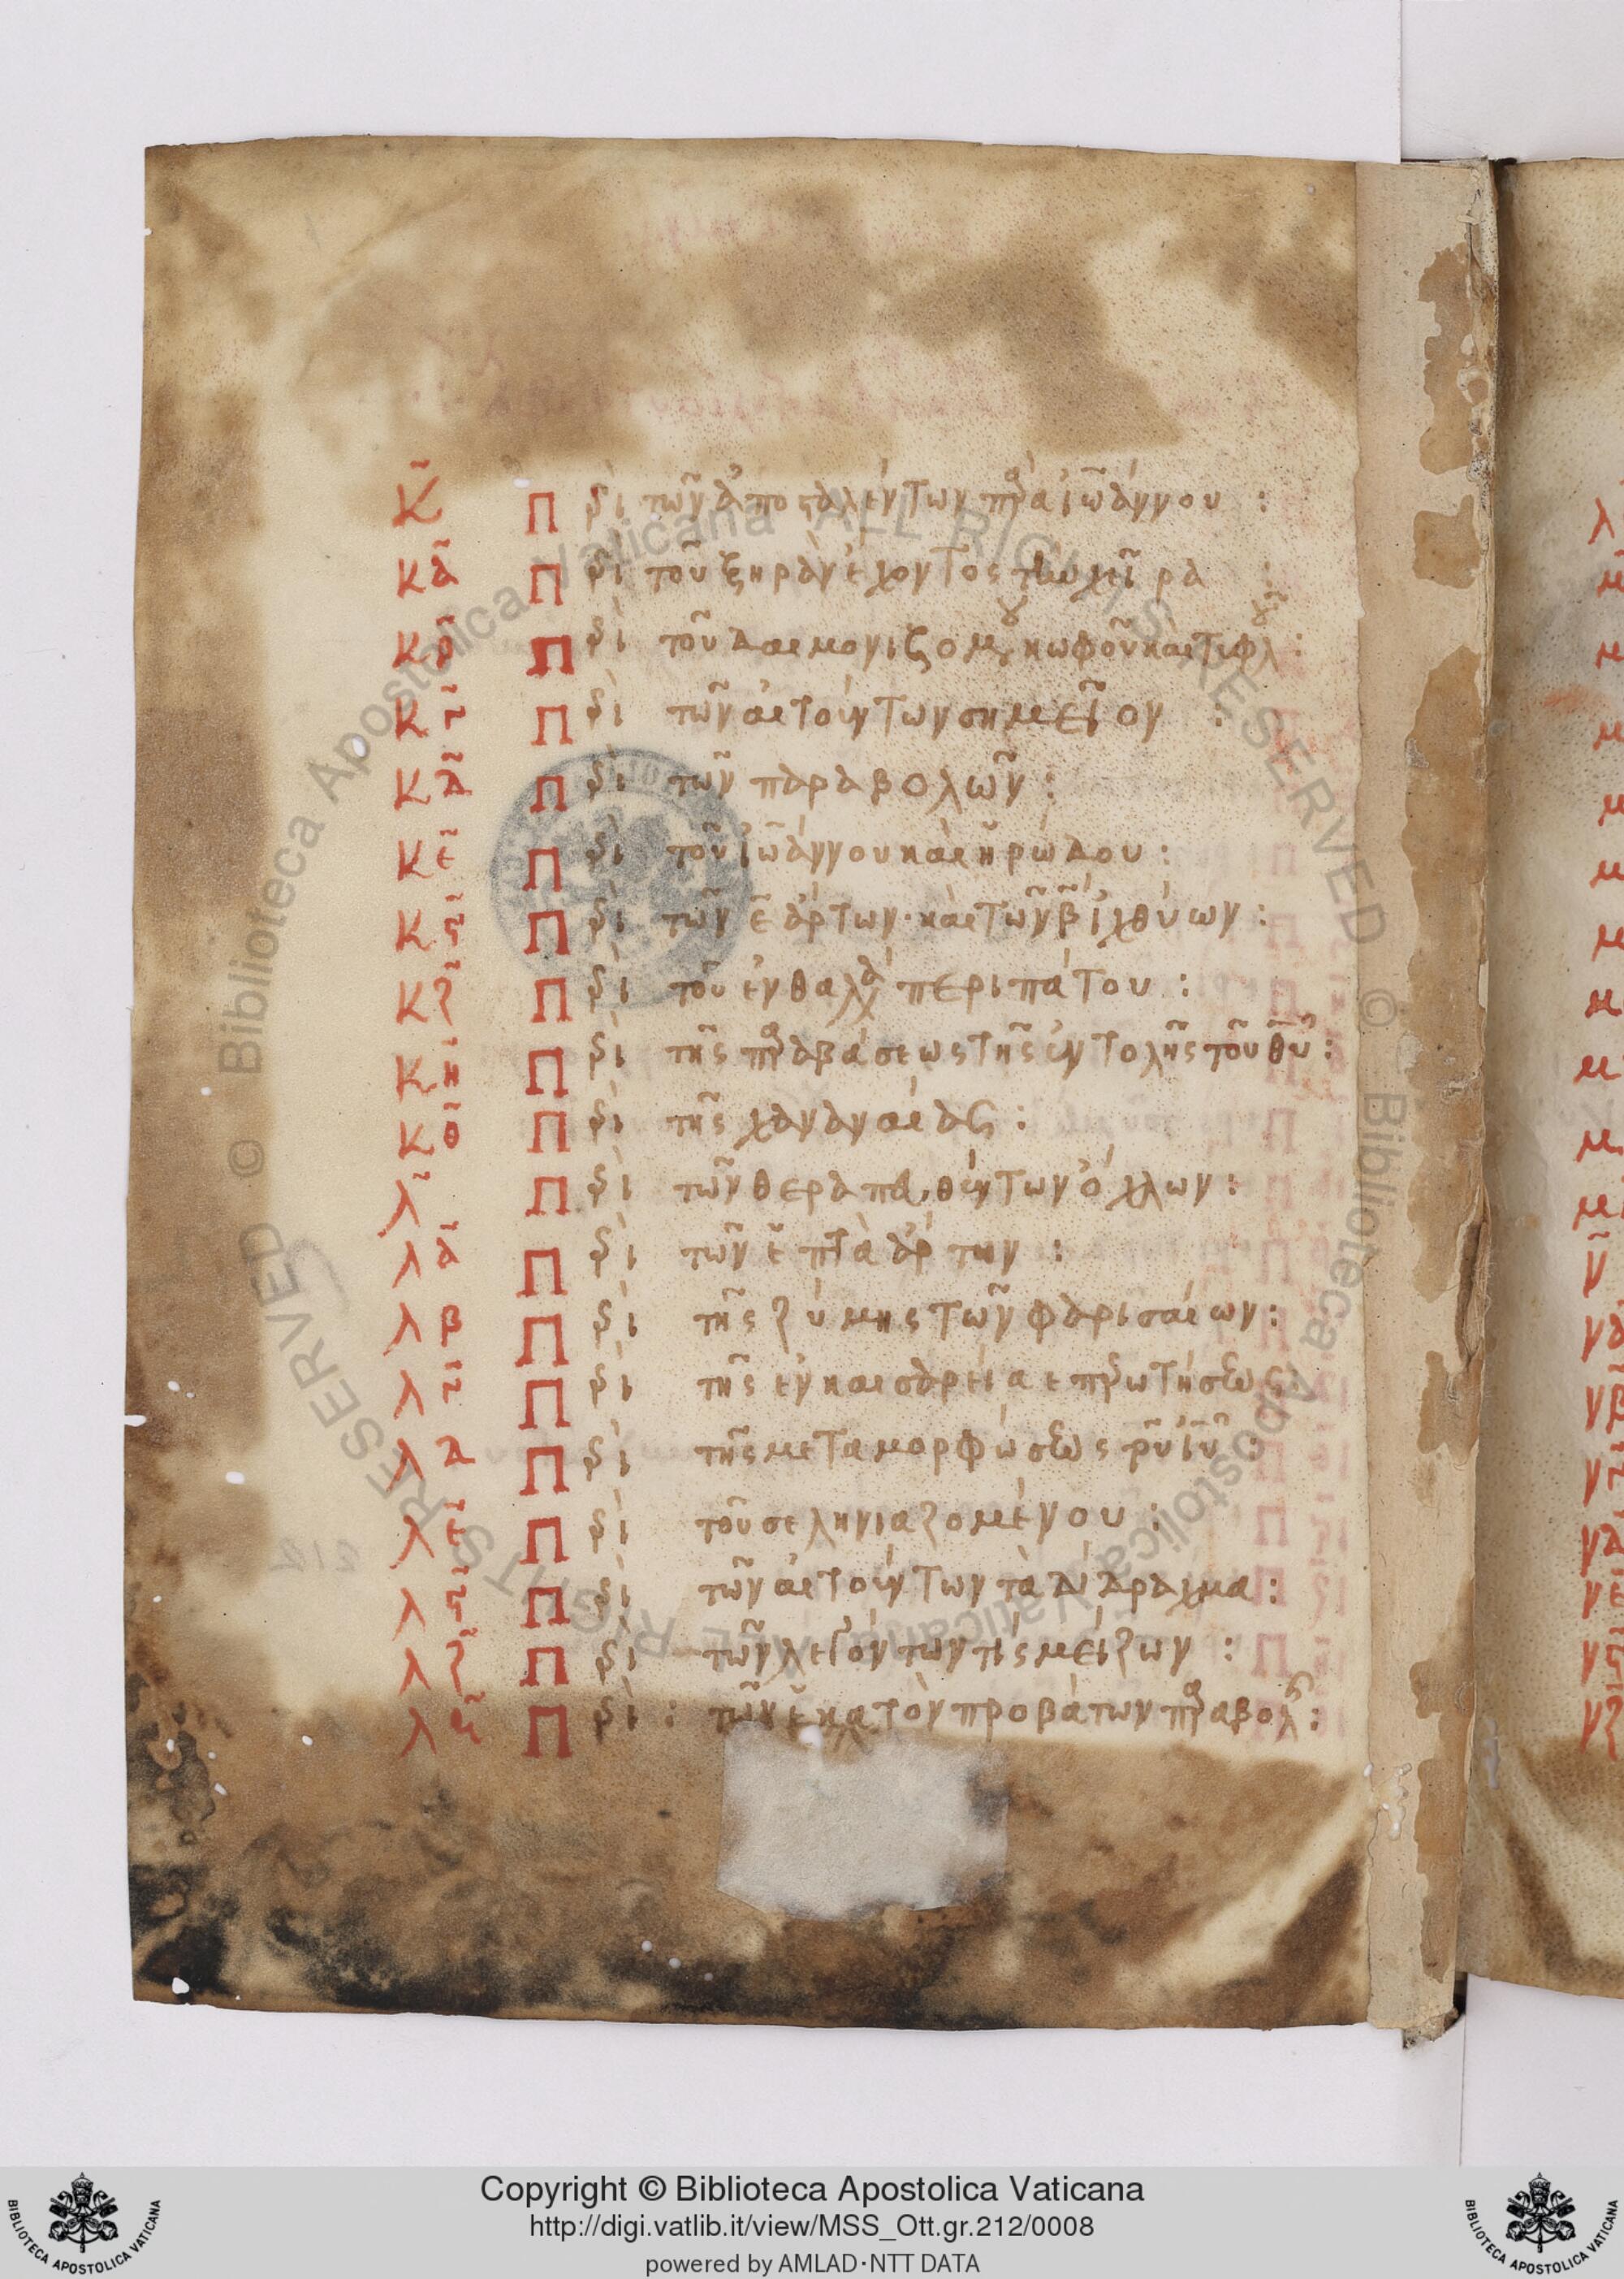 κ Περὶ τῶν ἀποσταλέντων παρὰ ἰωάννου :
κα Περὶ τοῦ ξηρὰν ἔχοντος τὴν χεῖρα :
κβ Περὶ τοῦ δαιμονιζομένου κωφοῦ καὶ τυφλοῦ :
κγ Περὶ τῶν αἰτούντων σημεῖον :
κδ Περὶ τῶν παραβολῶν :
κε Περὶ τοῦ ἰωάννου καὶ ἡρώδου :
κς Περὶ τῶν ε ἄρτων · καὶ τῶν β ἰχθύων :
κζ Περὶ τοῦ ἐν θαλάσσῃ περιπάτου :
κη Περὶ τῆς παραβάσεως τῆς ἐντολῆς τοῦ θυ :
κθ Περὶ τῆς χαναναίας :
λ Περὶ τῶν θεραπευθέντων ὄχλων :
λα Περὶ τῶν ἑπτὰ ἄρτων :
λβ Περὶ τῆς ζύμης τῶν φαρισαίων :
λγ Περὶ τῆς ἐν καισαρεία επερωτήσεως :
λδ Περὶ τῆς μεταμορφώσεως τοῦ ιυ :
λε Περὶ τοῦ σεληνιαζομένου :
λς Περὶ τῶν αἰτούντων τὰ δίδραχμα :
λζ Περὶ τῶν λεγόντων τίς μείζων :
λη Περὶ : τῶν ἑκατὸν προβάτων παραβολῆς :
Copyright © Biblioteca Apostolica Vaticana
http://digi.vatlib.it/view/MSS_Ott.gr.212/0008
powered by AMLAD·NTT DATA
BIBLIOTECA APOSTOLICA VATICANA
BIBLIOTECA APOSTOLICA VATICANA